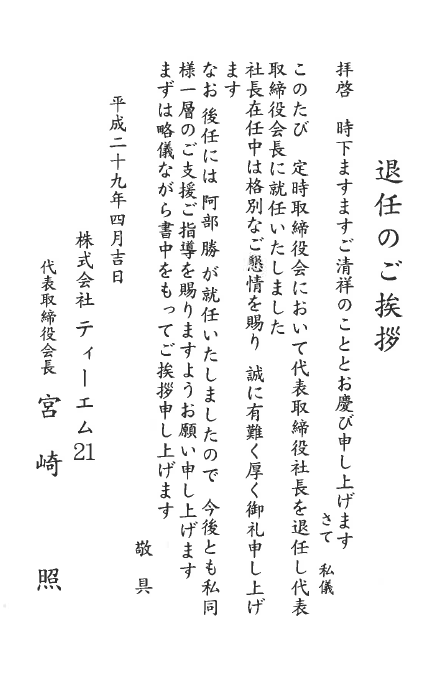 退任のご挨拶
拝啓　時下ますますご清祥のこととお慶び申し上げます
さて　私儀
このたび　定時取締役会において代表取締役社長を退任し代表
取締役会長に就任いたしました
社長在任中は格別なご懇情を賜り　誠に有難く厚く御礼申し上げ
ます
なお後任には阿部勝が就任いたしましたので　今後とも私同
様一層のご支援ご指導を賜りますようお願い申し上げます
まずは略儀ながら書中をもってご挨拶申し上げます
敬具
平成二十九年四月吉日
株式会社　ティーエム21
代表取締役会長　宮崎　照